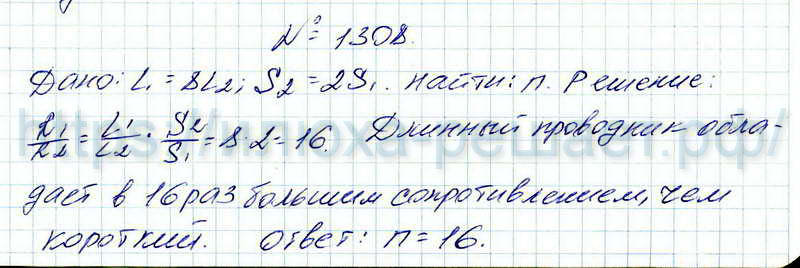 № 1308.
Дано: L₁ = 8L₂; S₂ = 2S₁. Найти: п. Решение:
R₁/R₂ = L₁/L₂ · S₂/S₁ = 8·2 = 16. Длинный проводник обла-
дает в 16 раз большим сопротивлением, чем
короткий. Ответ: п = 16.
https://илюха-решает.рф/